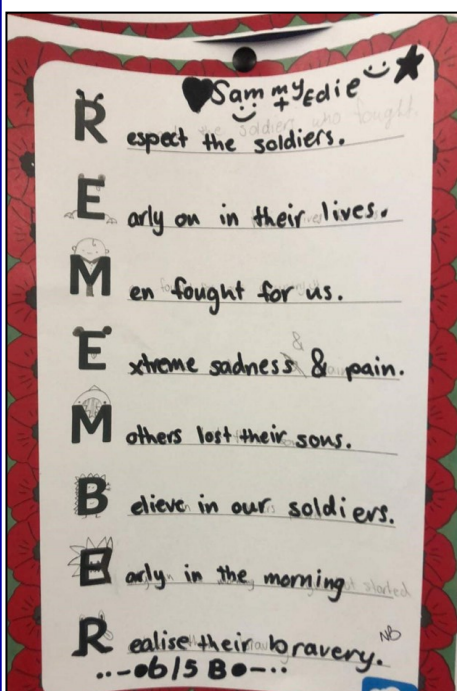 Sammy + Edie
Respect the soldiers.
Early on in their lives.
Men fought for us.
Extreme sadness & pain.
Mothers lost their sons.
Believe in our soldiers.
Early in the morning
Realise their bravery.
NB